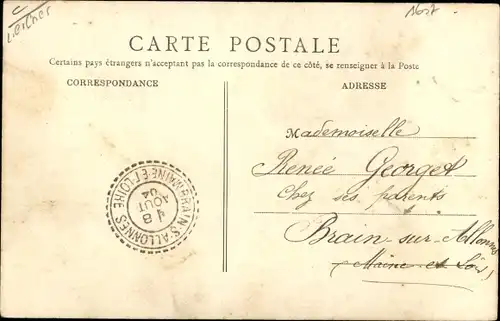 1627
CARTE POSTALE
Certains pays étrangers n'acceptant pas la correspondance de ce côté, se renseigner à la Poste
CORRESPONDANCE
ADRESSE
Mademoiselle
Renée Georget
Chez ses parents
Brain-sur-Allonnes
Maine et Loire
BRAIN S ALLONNES
MAINE-ET-LOIRE
18
AOUT
04